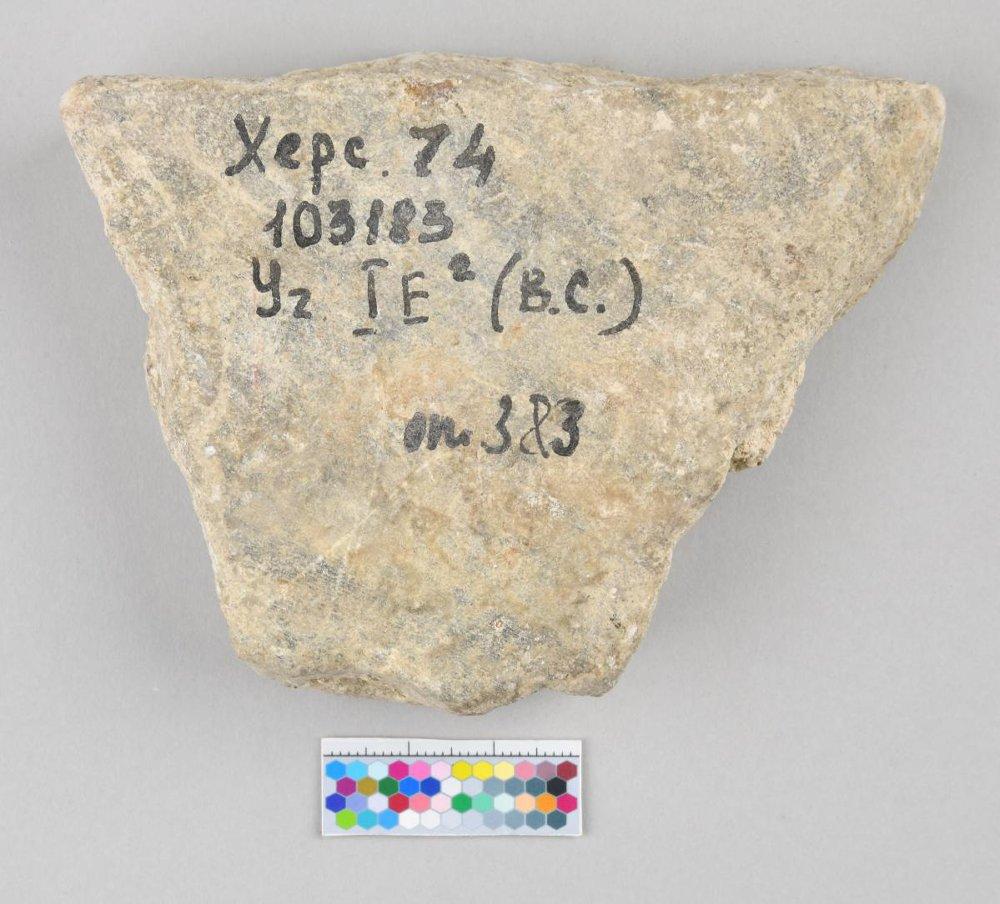 Херс. 74
103183
Уг IE² (В.С.)
оп. 383